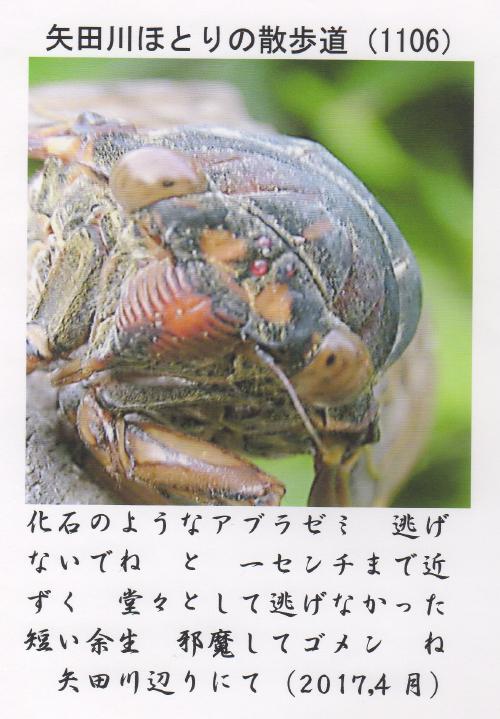 矢田川ほとりの散歩道（1106）
化石のようなアブラゼミ　逃げ
ないでね　と　一センチまで近
ずく　堂々として逃げなかった
短い余生　邪魔してゴメン　ね
矢田川辺りにて（2017,4月）